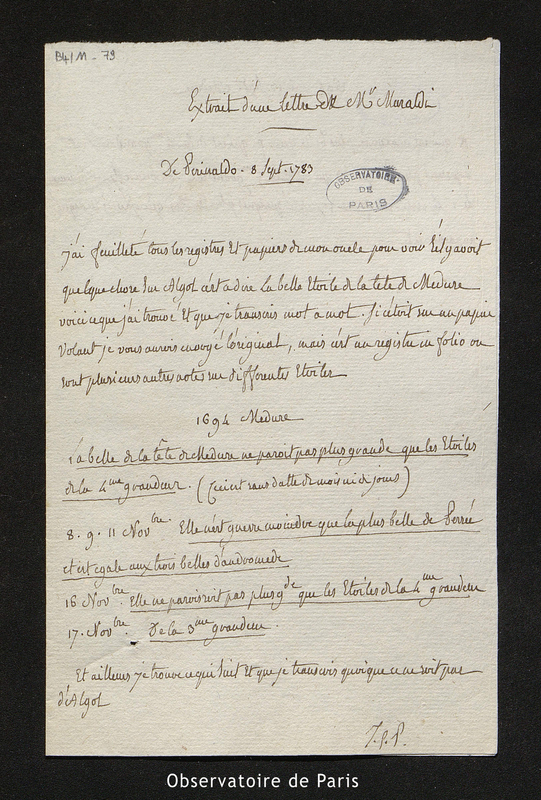 B4/M - 79
Extrait d'une lettre de Mr Maraldi
De Perinaldo - 8 Sept. 1783
OBSERVATOIRE
DE
PARIS
j'ai feuilleté tous les registres Et papiers de mon oncle pour voir s'il y avoit
quelque chose sur Algol c'est a dire La belle Etoile de la tete de Meduse
voici ce que j'ai trouvé Et que je transcris mot a mot. Si c'étoit sur un papier
volant je vous aurois envoyé l'original, mais c'est un registre in folio ou
sont plusieurs autres notes sur differentes Etoiles
1694 Meduse
La belle de la tête de Meduse ne paroit pas plus grande que les Etoiles
de la 4me grandeur. (ceci est sans datte de mois ni de jours)
8. 9. 11 Novbre. Elle n'est guerre moindre que la plus belle de Persée
et est egale aux trois belles d'andromede
16 Novbre. Elle ne paroissoit pas plus gde que les Etoiles de la 4me grandeur
17. Novbre. De la 3me grandeur.
Et ailleurs je trouve ce qui suit Et que je transcris quoique ce ne soit pas
d'Algol
T.S.P.
Observatoire de Paris